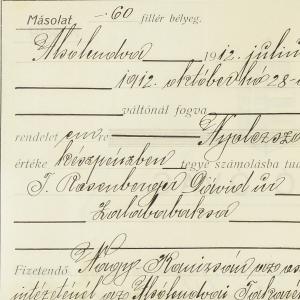 Másolat —·60 fillér bélyeg.
Alsólendva 1912. julius
1912. október hó 28-
váltónál fogva
rendelet em re Nyolczszá
értéke készpénzben tegye számolásba tud
T. Rosenberger Dávid úr
Zalabaksa
Fizetendő Nagy-Kanizsán az os
intézeténél az Alsólendvai Takaré